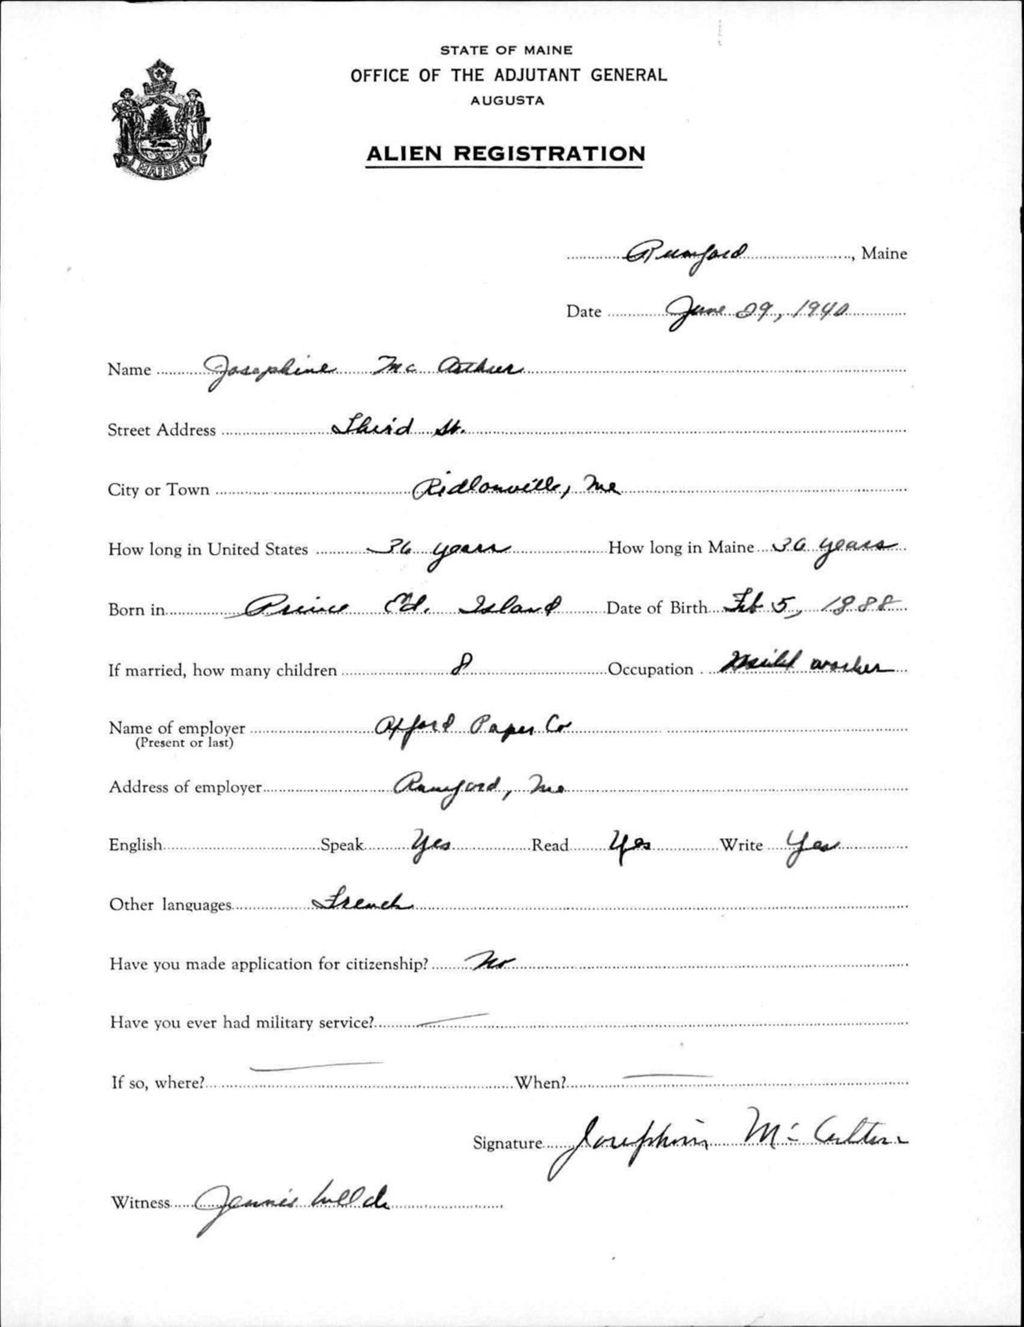 STATE OF MAINE
OFFICE OF THE ADJUTANT GENERAL
AUGUSTA
MAINE
ALIEN REGISTRATION
Rumford, Maine
Date June 29, 1940
Name Josephine Mc Arthur
Street Address Third St.
City or Town Ridlonville, Me
How long in United States 36 years How long in Maine 36 years
Born in Prince Ed. Island Date of Birth Feb 5, 1888
If married, how many children 8 Occupation worker
Name of employer Oxford Paper Co
(Present or last)
Address of employer Rumford, Me
English Speak Yes Read Yes Write Yes
Other languages French
Have you made application for citizenship? No
Have you ever had military service? —
If so, where? — When? —
Signature Josephine Mc Arthur
Witness